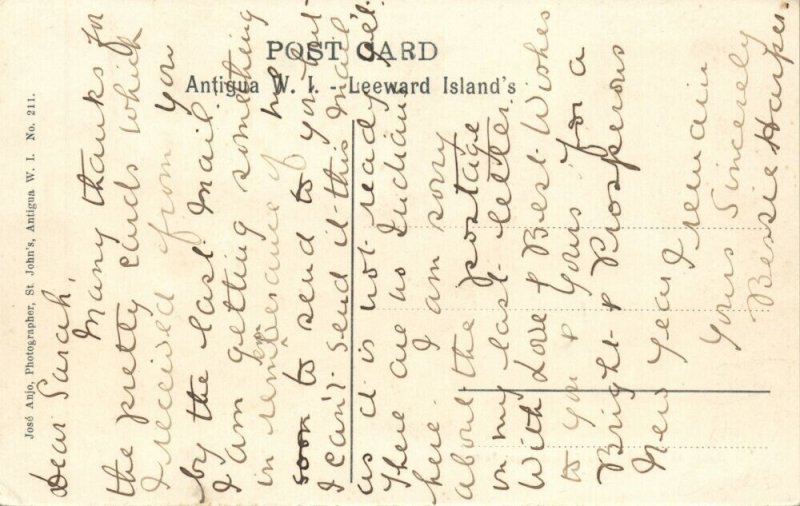 POST CARD
Antigua W. I. -- Leeward Island's
José Anjo, Photographer, St John's, Antigua W. I. No. 211.
Dear Sarah,
Many thanks for
the pretty cards which
I received from you
by the last mail.
I am getting something
in remberance of me
em
soon to send to you but
I can't send it this mail
as it is not ready yet.
There are no Indian's
here. I am sorry
about the postage
on my last letter.
With Love & Best Wishes
to you & yours for a
Bright & Prosperous
New Year I remain
Yours Sincerely
Bessie Harper.